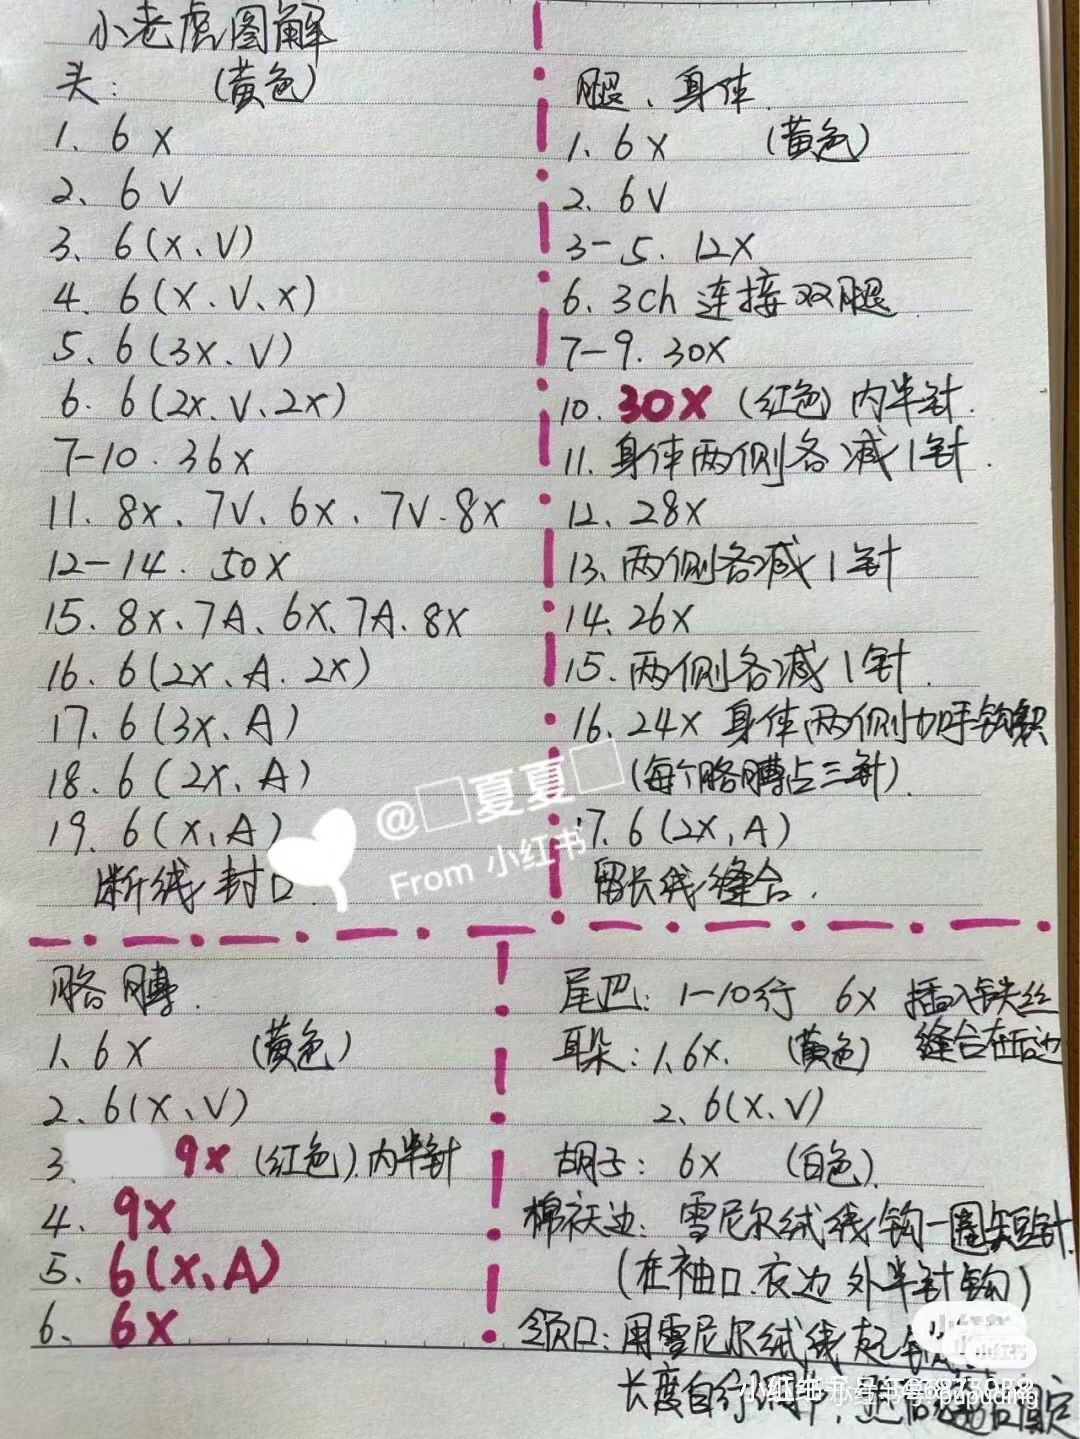 小老虎图解
头: (黄色)
1、6X
2、6V
3、6(X、V)
4、6(X、V、X)
5、6(3X、V)
6、6(2X、V、2X)
7-10、36X
11、8X、7V、6X、7V、8X
12-14、50X
15、8X、7A、6X、7A、8X
16、6(2X、A、2X)
17、6(3X、A)
18、6(2X、A)
19、6(X、A)
断线封口
腿、身体
1、6X (黄色)
2、6V
3-5、12X
6、3ch 连接双腿
7-9、30X
10、30X (红色) 内半针
11、身体两侧各减1针
12、28X
13、两侧各减1针
14、26X
15、两侧各减1针
16、24X 身体两侧加手钩织
(每个胳膊占三针)
17、6(2X、A)
留长线缝合
@夏夏
From 小红书
胳膊
1、6X (黄色)
2、6(X、V)
3、9X (红色) 内半针
4、9X
5、6(X、A)
6、6X
尾巴: 1-10行 6X 插入铁丝
缝合在后边
耳朵: 1、6X (黄色)
2、6(X、V)
胡子: 6X (白色)
棉袄边: 雪尼尔绒线钩一圈短针
(在袖口、衣边外半针钩)
领口: 用雪尼尔绒线起
长度自行调节,
固定
小红书